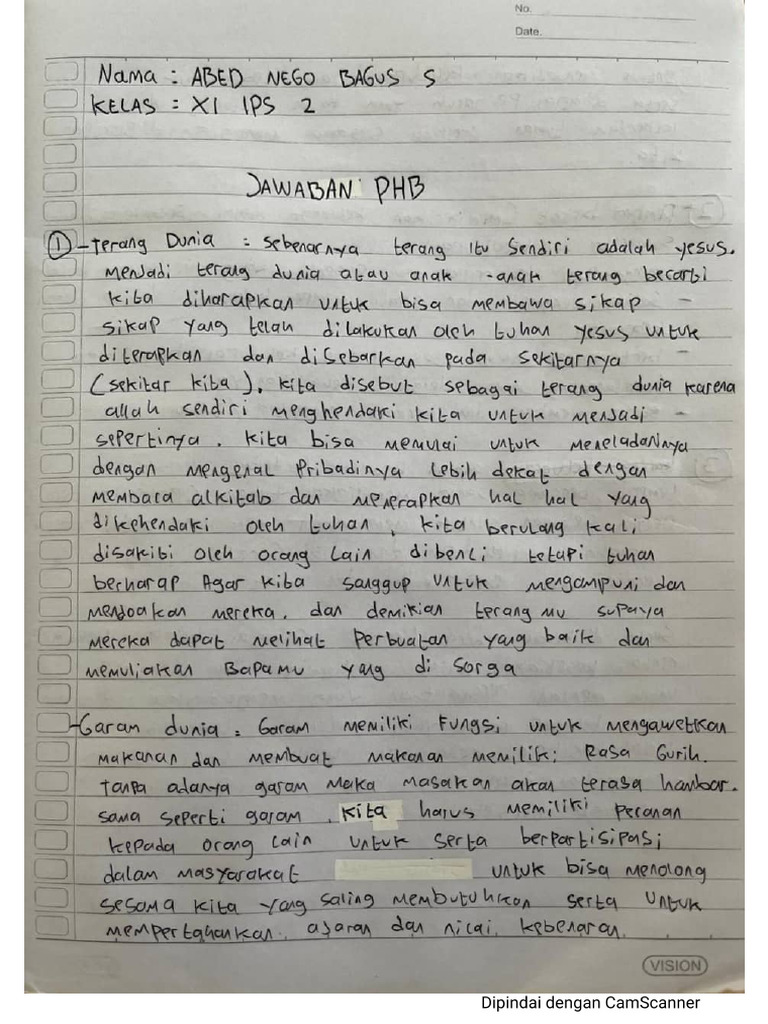 No.
Date.
Nama : ABED NEGO BAGUS S
KELAS : XI IPS 2
JAWABAN PHB
① - Terang Dunia : Sebenarnya terang itu sendiri adalah yesus.
Menjadi terang dunia atau anak -anak terang berarti
kita diharapkan untuk bisa membawa sikap -
sikap yang telah dilakukan oleh tuhan yesus untuk
diterapkan dan disebarkan pada sekitarnya
(sekitar kita). kita disebut sebagai terang dunia karena
allah sendiri menghendaki kita untuk menjadi -
sepertinya. kita bisa memulai untuk meneladaninya
dengan mengenal Pribadinya lebih dekat dengan
membaca alkitab dan menerapkan hal hal yang
dikehendaki oleh tuhan, kita berulang kali
disakiti oleh orang lain dibenci tetapi tuhan
berharap Agar kita sanggup untuk mengampuni dan
mendoakan mereka. dan demikian terang mu supaya
mereka dapat melihat Perbuatan yang baik dan
memuliakan Bapamu yang di Sorga
- Garam dunia : Garam memiliki Fungsi untuk mengawetkan
makanan dan membuat makanan memiliki Rasa Gurih.
tanpa adanya garam Maka masakan akan terasa hambar.
sama seperti garam, kita harus memiliki peranan
kepada orang lain untuk serta berpartisipasi
dalam masyarakat untuk bisa menolong
sesama kita yang saling membutuhkan serta untuk
mempertahankan ajaran dan nilai kebenaran.
VISION
Dipindai dengan CamScanner